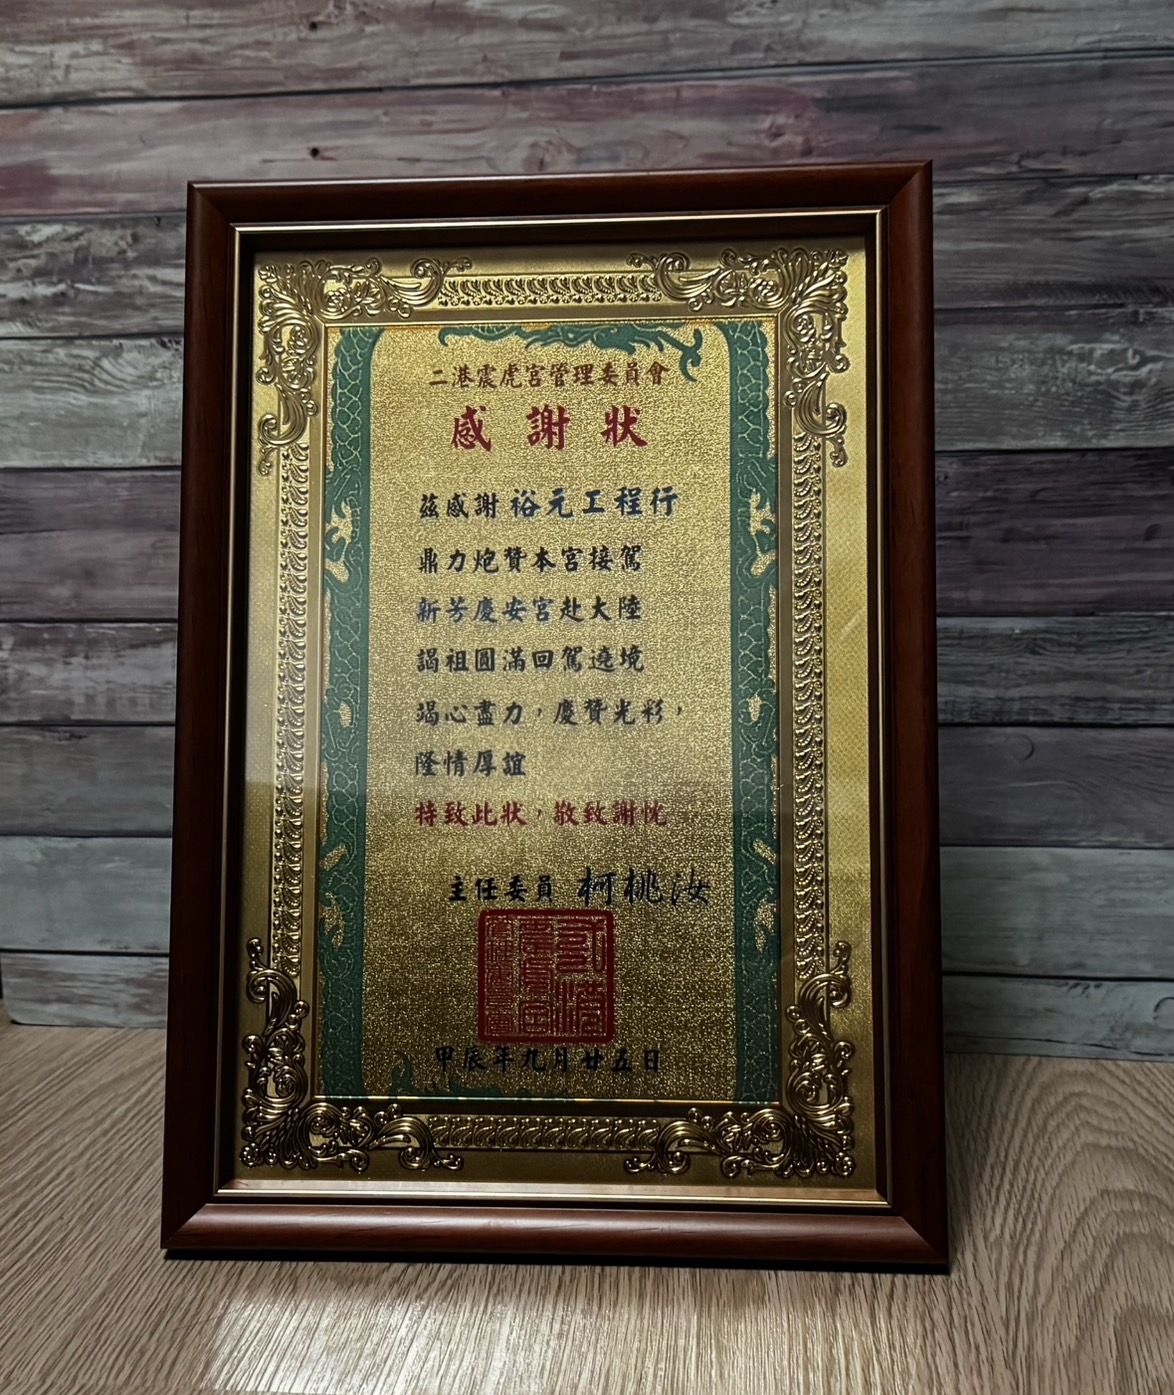 二港震虎宮管理委員會
感謝狀
茲感謝 裕元工程行
鼎力炮贊本宮接駕
新芳慶安宮赴大陸
謁祖圓滿回駕遶境
竭心盡力，慶贊光彩，
隆情厚誼
持致此狀，敬致謝忱
主任委員 柯桃汝
甲辰年九月廿五日